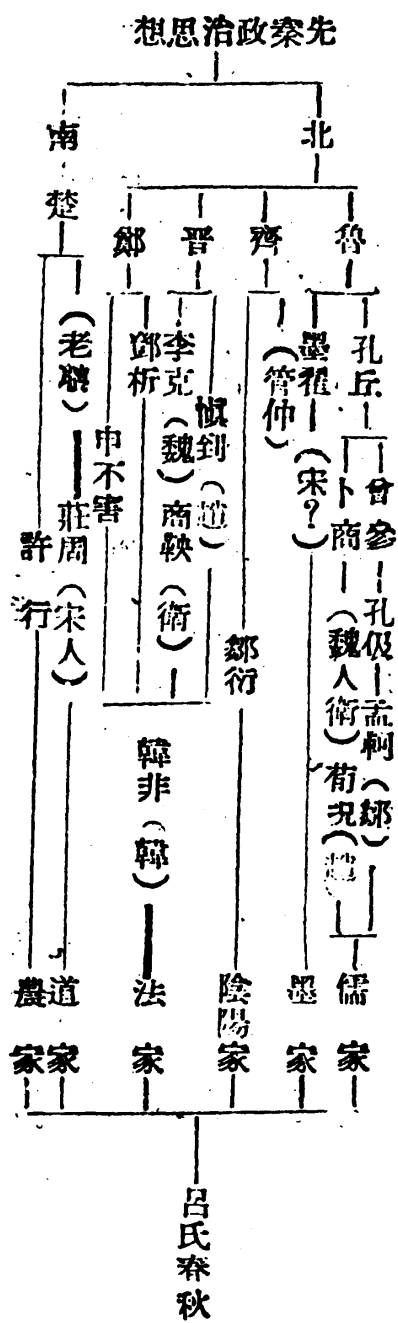 先秦政治思想
北
南
魯
齊
晉
鄭
楚
孔丘
曾參
孔伋
孟軻（鄒）
卜商
（魏人衛）
荀況（趙）
墨翟
（宋？）
（管仲）
鄒衍
慎到（趙）
李克（魏）
商鞅（衛）
鄧析
申不害
韓非（韓）
（老聃）
莊周（宋人）
許行
儒家
墨家
陰陽家
法家
道家
農家
呂氏春秋